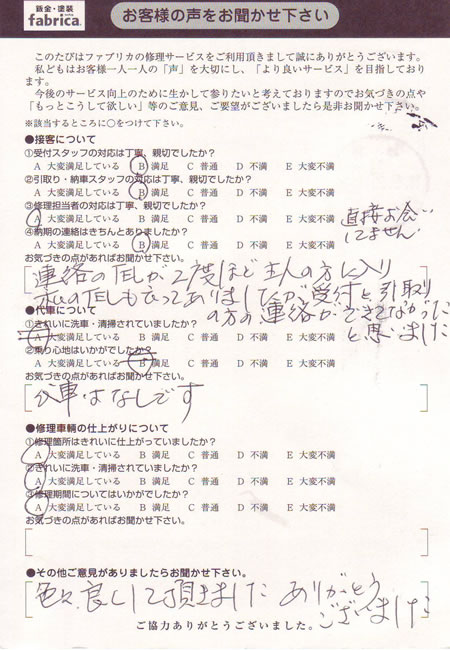 鈑金・塗装
fabrica.
お客様の声をお聞かせ下さい
このたびはファブリカの修理サービスをご利用頂きまして誠にありがとうございます。
私どもはお客様一人一人の「声」を大切にし、「より良いサービス」を目指しており
ます。
今後のサービス向上のために生かして参りたいと考えておりますのでお気づきの点や
「もっとこうして欲しい」等のご意見、ご要望がございましたら是非お聞かせ下さい。
※該当するところに○をつけて下さい。
●接客について
①受付スタッフの対応は丁寧、親切でしたか？
A 大変満足している B 満足 C 普通 D 不満 E 大変不満
②引取り・納車スタッフの対応は丁寧、親切でしたか？
A 大変満足している B 満足 C 普通 D 不満 E 大変不満
③修理担当者の対応は丁寧、親切でしたか？
A 大変満足している B 満足 C 普通 D 不満 E 大変不満
直接お会い
してません
④納期の連絡はきちんとありましたか？
A 大変満足している B 満足 C 普通 D 不満 E 大変不満
お気づきの点があればお聞かせ下さい。
連絡のTELが2度ほど主人の方に入り
私のTELも言ってありましたが受付と引取り
の方の連絡ができてなかった
と思いました
●代車について
①きれいに洗車・清掃されていましたか？
A 大変満足している B 満足 C 普通 D 不満 E 大変不満
②乗り心地はいかがでしたか？
A 大変満足している B 満足 C 普通 D 不満 E 大変不満
お気づきの点があればお聞かせ下さい。
代車はなしです
●修理車輌の仕上がりについて
①修理箇所はきれいに仕上がっていましたか？
A 大変満足している B 満足 C 普通 D 不満 E 大変不満
②きれいに洗車・清掃されていましたか？
A 大変満足している B 満足 C 普通 D 不満 E 大変不満
③修理期間についてはいかがでしたか？
A 大変満足している B 満足 C 普通 D 不満 E 大変不満
お気づきの点があればお聞かせ下さい。
●その他ご意見がありましたらお聞かせ下さい。
色々良くして頂きました ありがとう
ございました
ご協力ありがとうございました。